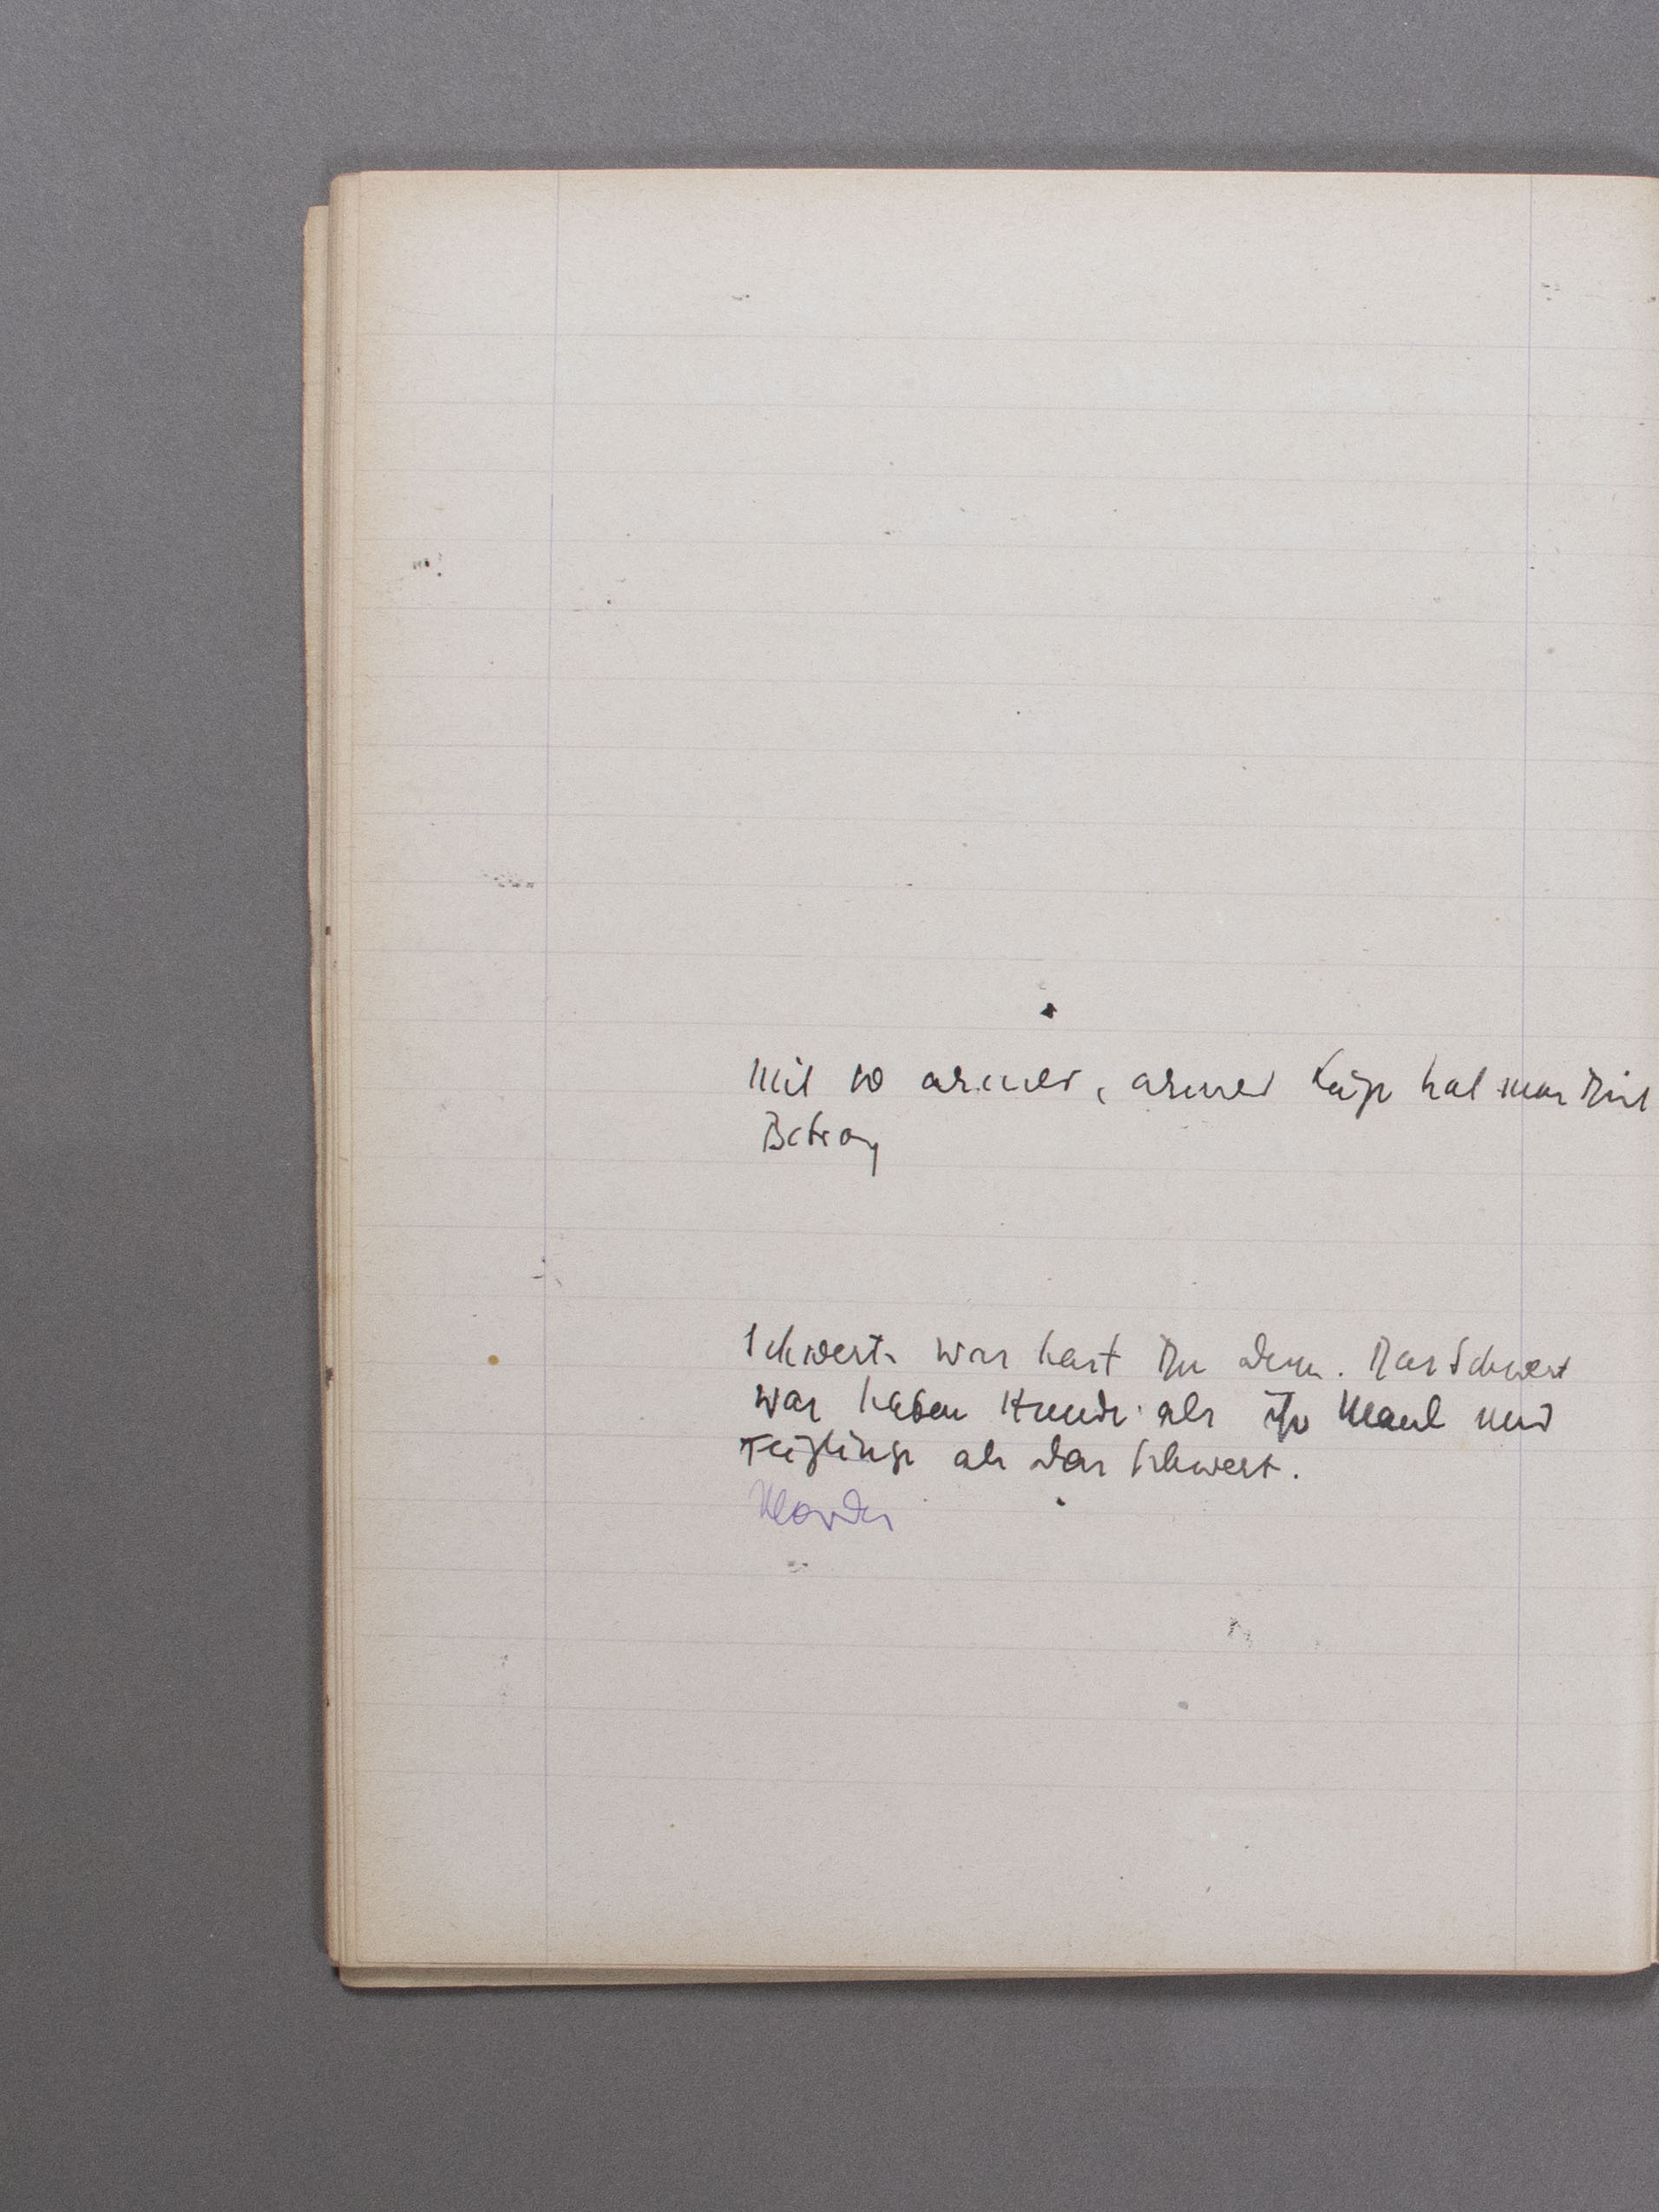 Mit so armer, armer Lüge hat man Dich
Betrog
Schwert. Was hast Du denn. Das Schwert
Was haben Hunde als ihr Maul und
Feiglinge als das Schwert.